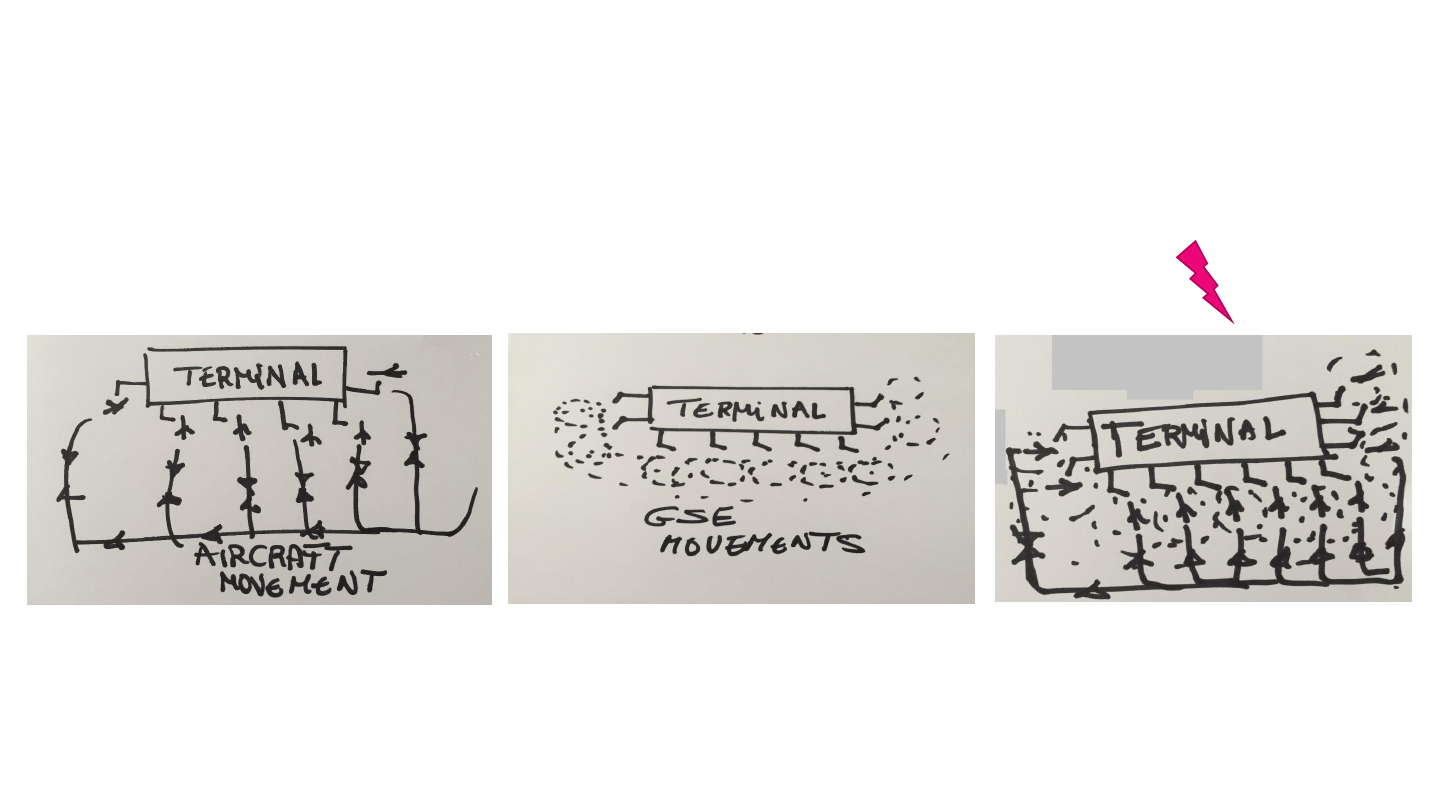 TERMINAL
AIRCRAFT
MOVEMENT
TERMiNAL
GSE
MOVEMENTS
TERMINAL